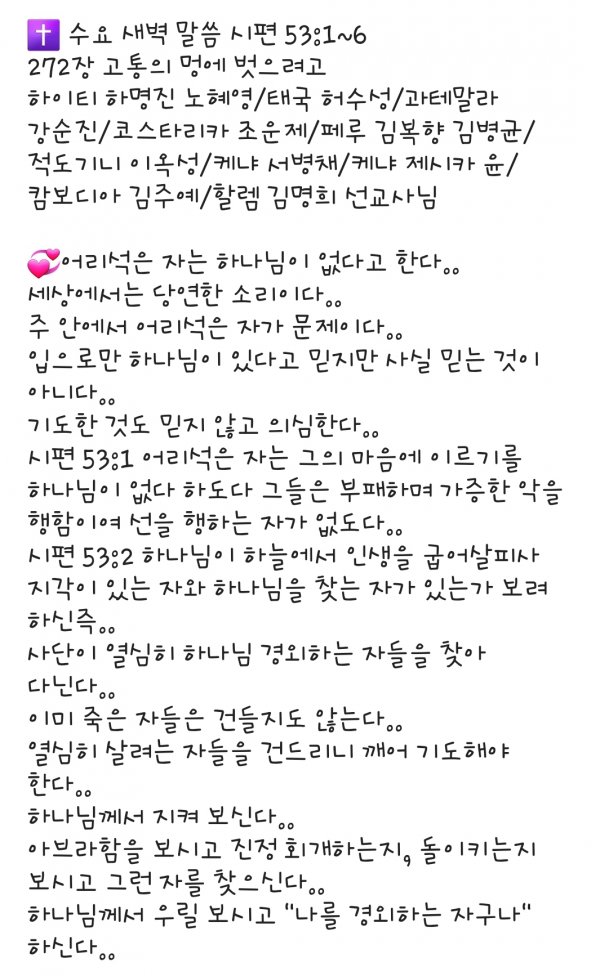 ✝️ 수요 새벽 말씀 시편 53:1~6
272장 고통의 멍에 벗으려고
하이티 하명진 노혜영/태국 허수성/과테말라
강순진/코스타리카 조운제/페루 김복향 김병균/
적도기니 이옥성/케냐 서병채/케냐 제시카 윤/
캄보디아 김주예/할렘 김명희 선교사님

💞어리석은 자는 하나님이 없다고 한다。。
세상에서는 당연한 소리이다。。
주 안에서 어리석은 자가 문제이다。。
입으로만 하나님이 있다고 믿지만 사실 믿는 것이
아니다。。
기도한 것도 믿지 않고 의심한다。。
시편 53:1 어리석은 자는 그의 마음에 이르기를
하나님이 없다 하도다 그들은 부패하며 가증한 악을
행함이여 선을 행하는 자가 없도다。。
시편 53:2 하나님이 하늘에서 인생을 굽어살피사
지각이 있는 자와 하나님을 찾는 자가 있는가 보려
하신즉。。
사단이 열심히 하나님 경외하는 자들을 찾아
다닌다。。
이미 죽은 자들은 건들지도 않는다。。
열심히 살려는 자들을 건드리니 깨어 기도해야
한다。。
하나님께서 지켜 보신다。。
아브라함을 보시고 진정 회개하는지, 돌이키는지
보시고 그런 자를 찾으신다。。
하나님께서 우릴 보시고 "나를 경외하는 자구나"
하신다。。